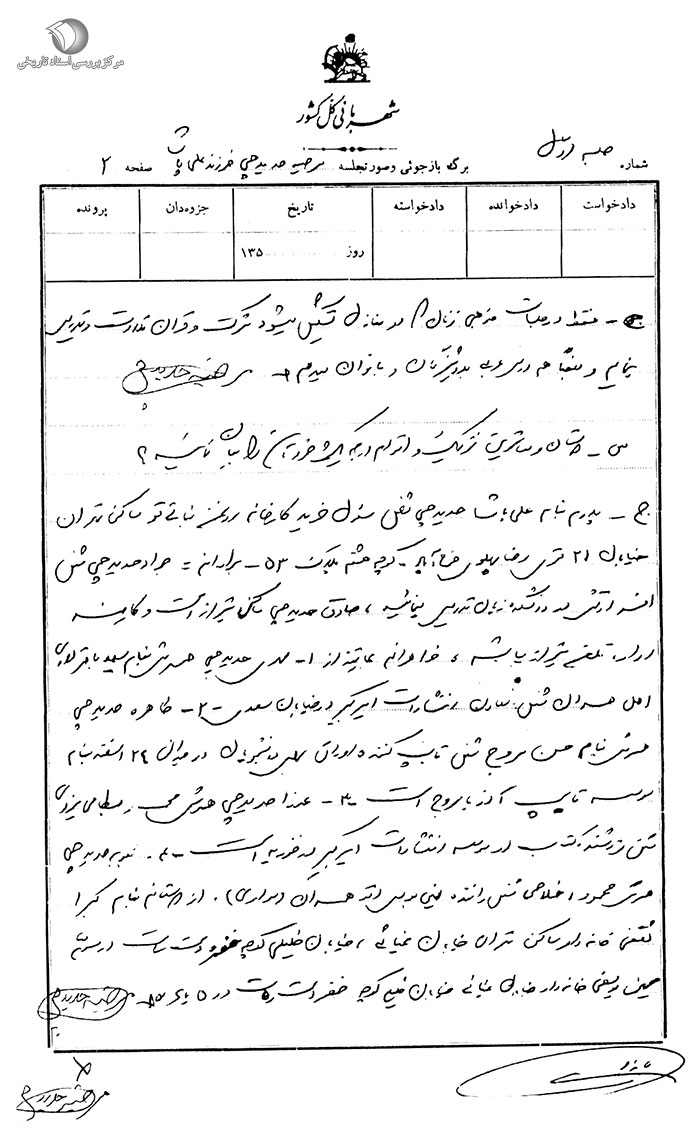 مرکز بررسی اسناد تاریخی
شهربانی کل کشور
شماره جلسه اول
برگ بازجوئی وصورتجلسه مرضیه حدیدچی فرزند علی پاشا صفحه ۲
دادخواست دادخوانده دادخواسته تاریخ جزوه‌دان پرونده
روز ۱۳۵
ج – فقط در جلسات مذهبی زنان که در منازل تشکیل میشود شرکت و قرآن تلاوت و تدریس
مینمایم و بعضاً هم درس عربی به دوشیزگان و بانوان میدهم مرضیه حدیدچی
س – دوستان و معاشرین نزدیک و اقوام درجه یک خودتان را بیان نمائید ؟
ج – پدرم بنام علی پاشا حدیدچی شغل مسئول خرید کارخانه روغن نباتی قو ساکن تهران
خیابان ۲۱ متری رضا پهلوی فرح آباد – کوچه هشتم پلاک ۵۳ – برادرانم = جواد حدیدچی شغل
افسر ارتش در دانشکده زبان تدریس مینماید ، صادق حدیدچی ساکن شیراز است و کارمند
اداره تلفن شیراز میباشد ، خواهرانم عبارتند از ۱ – مهدی حدیدچی همسرش بنام سعید باقر
اهل همدان شغل انتشارات امیرکبیر در خیابان سعدی – ۲ – طاهره حدیدچی
همرش بنام حسن مروج شغل تایپ کننده اوراق دانشجویان در میدان ۲۴ اسفند بنام
موسسه تایپ مروج است – ۳ – عذرا حدیدچی همرش
شغل فروشنده کتاب در موسسه انتشارات امیرکبیر است – ۴ – حدیدچی
همرش محمود اخلاصی شغل راننده همدان (سواری) . از دوستانم بنام کبرا
خانه دار ساکن تهران خیابان غیاثی ، خیابان خلیلی کوچه دست راست
یوسفی خانه دار خیابان غیاثی خیابان خلیلی کوچه دست راست در مرضیه حدیدچی
مرضیه حدیدچی